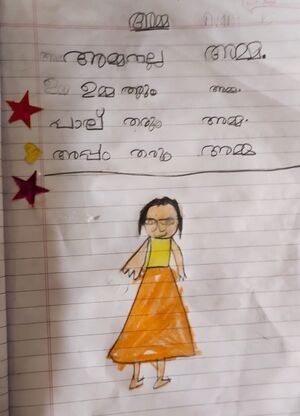 അമ്മ
അമ്മനല്ല അമ്മ.
ഉമ്മ തരും അമ്മ.
പാല് തരും അമ്മ.
അപ്പം തരും അമ്മ